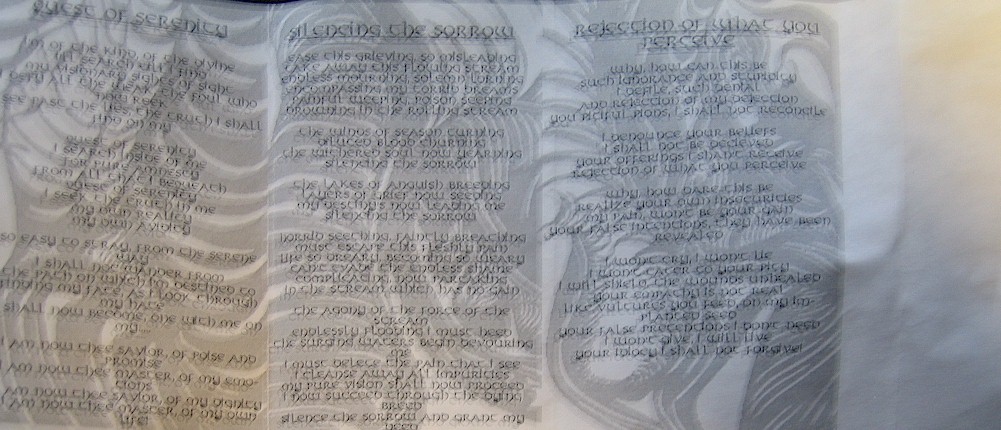 Quest of Serenity
I'm of the kind of the divine
I search all I find
my visionary sights of sight
the soul who
they seek
see past the lies, the truth I shall
find on my
Quest of Serenity
I search inside of me
for pure amnesty
from all that I bequeath
Quest of Serenity
I seek the truth in me
my own reality
my own avidity
so easy to stray, from the serene
way
I shall not wander from
the path on which I'm destined to
look through
my hate
shall now become, one with me on
my...
I am now thee savior, of poise and
promise
I am now thee master, of my emo-
tions
I am now thee savior, of my dignity
I am now thee master, of my own
life!
Silencing the Sorrow
ease this grieving, so misleading
take away this flowing stream
endless mourning, solemn turning
encompassing my torrid dreams
painful weeping, poison seeping
drowning in the rolling stream
the winds of season turning
diluted blood churning
the withered soul now yearning
silencing the sorrow
the lakes of anguish breeding
rivers of grief now seeding
my destinys now leading me
silencing the sorrow
horrid seething, faintly breathing
must escape this fleshly pain
life so dreary, becoming so weary
can't evade the endless shame
complicating, now partaking
in the stream which has no gain
the agony of the force of the
stream
endlessly flowing I must heed
the surging waters begin devouring
me
I must delete the pain that I see
I cleanse away all impurities
my pure vision shall now proceed
I now succeed through the dying
breed
silence the sorrow and grant my
need
Rejection of What You
Perceive
why, how can this be
such ignorance and stupidity
I defile, such denial
and rejection of my dejection
you pitiful pions, I shall not reconcile
I denounce your beliefs
I shall not be decieved
your offerings I shan't receive
rejection of what you perceive
why, how dare this be
realize your own insecurities
my pain, won't be your gain
your false intentions, they have been
revealed
I won't cry, I won't lie
I won't cater to your pity
I will shield, the wounds unhealed
your empathy is not real
like vultures you feed, on my im-
planted seed
your false pretentions I don't need
I won't give, I will live
your fology I shall not forgive!